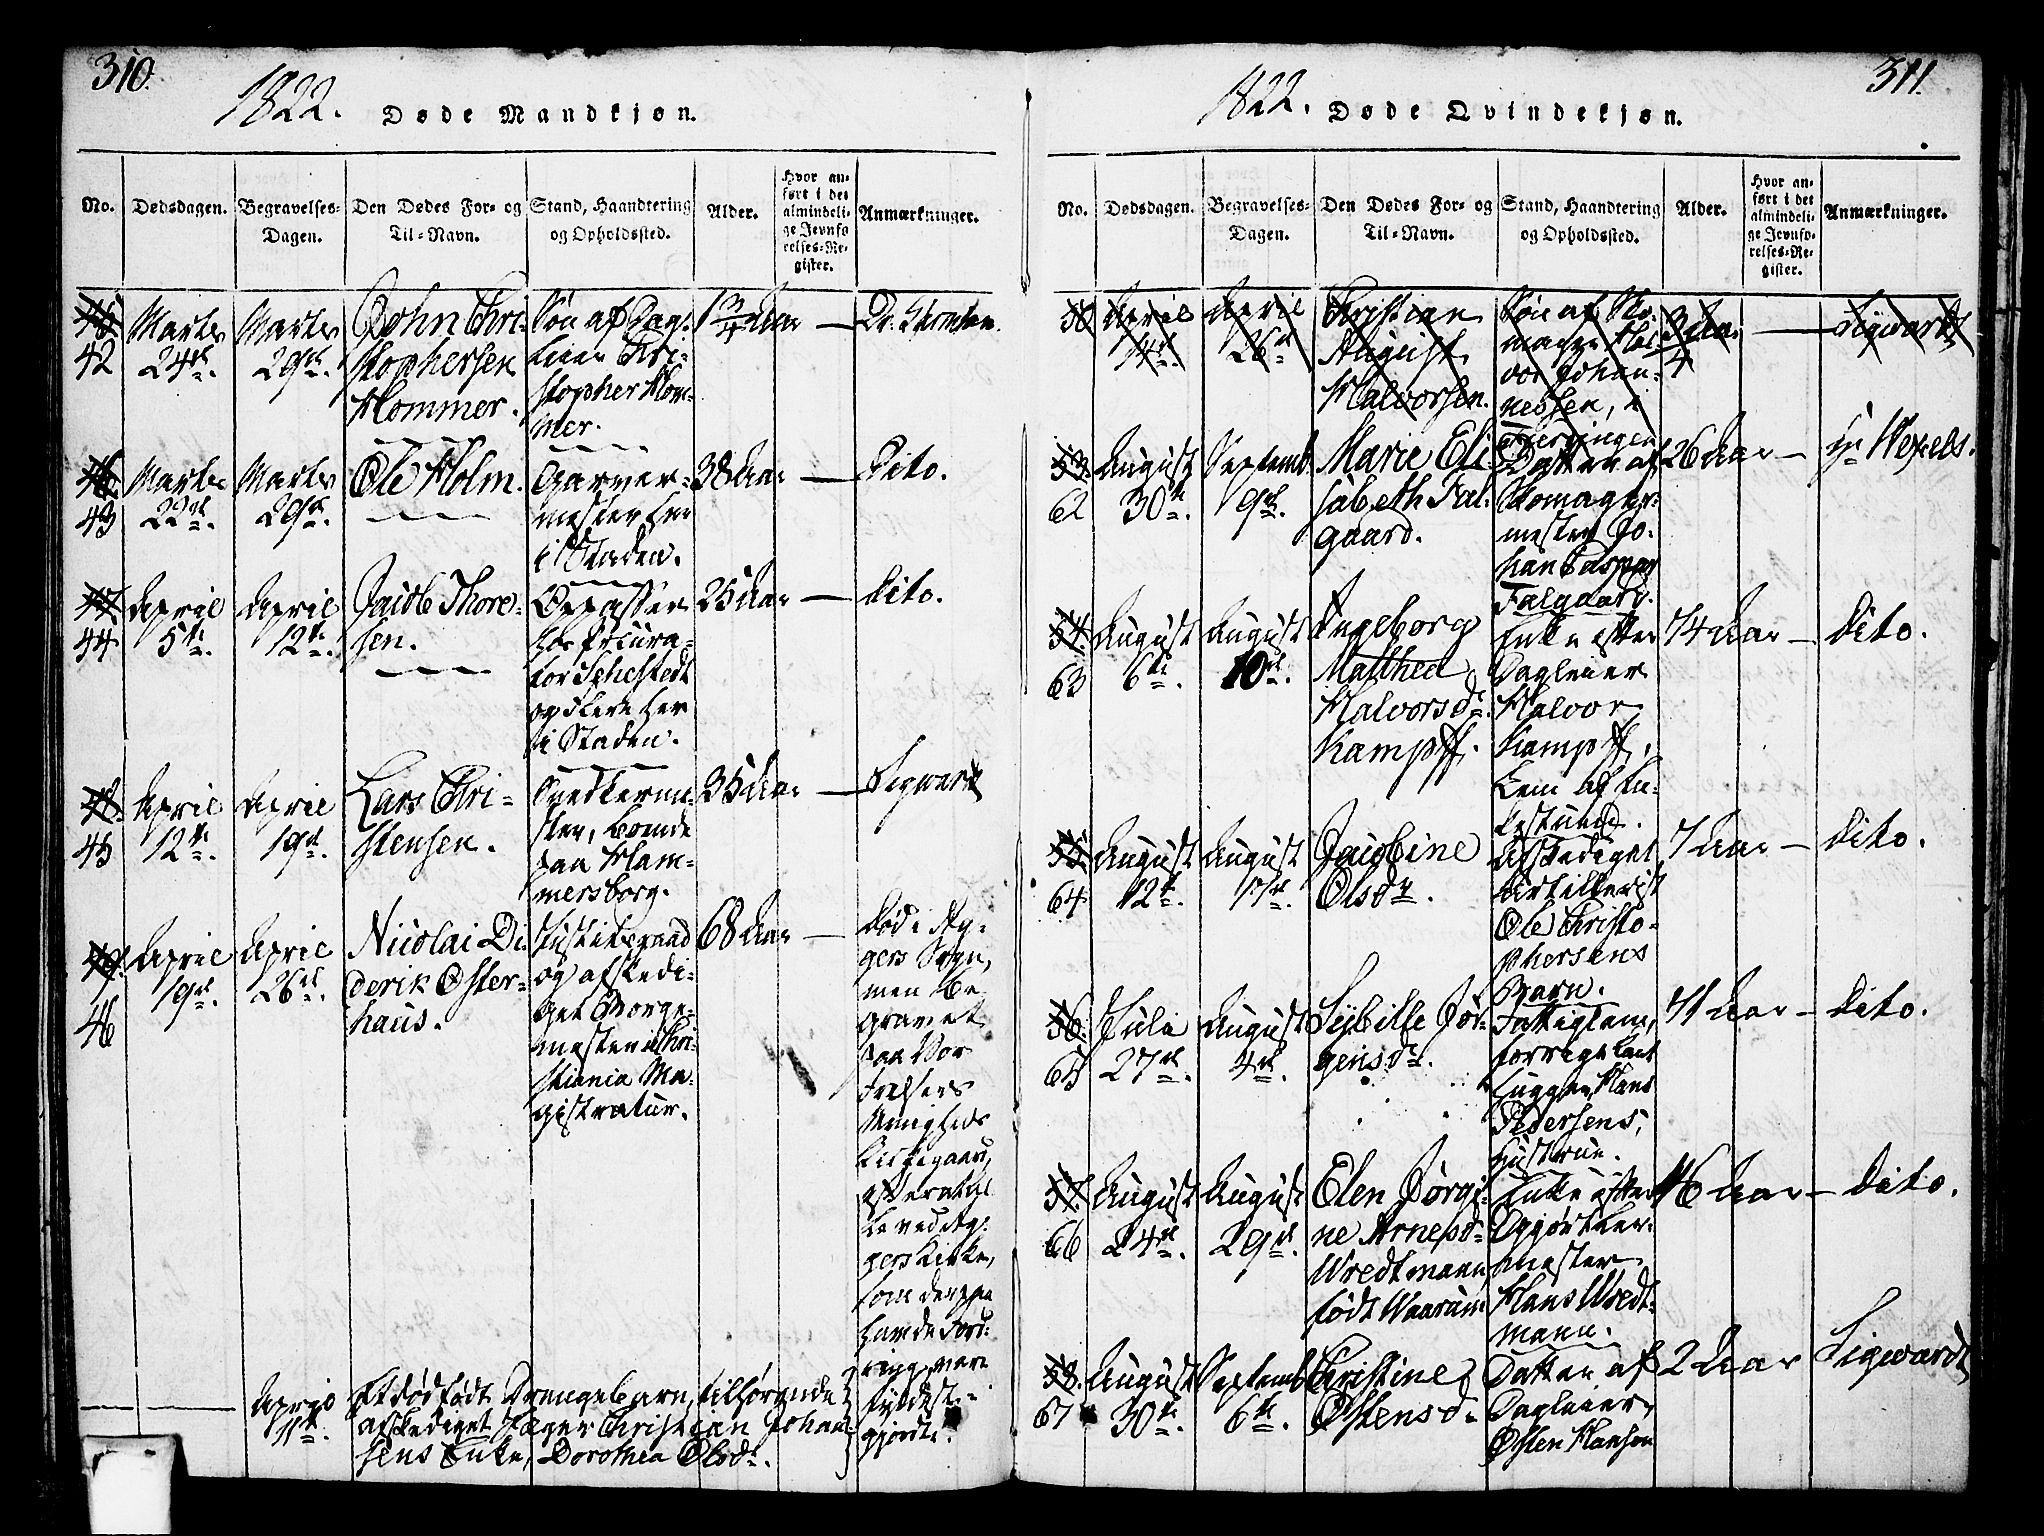 310.
1822. Døde Mandkjøn.
No. Dødsdagen. Begravelses-Dagen. Den Dødes For- og Til-Navn. Stand, Haandtering og Opholdssted. Alder. Hvor anført i det almindelige Jevnførelses-Register. Anmærkninger.
42
Martz
24de.
Martz
29de.
John Chri-
stophersen
Hommer.
Søn af Dag-
leier Chri-
stopher Hom-
mer.
1 3/4 Aar
—
46.
43
Martz
22de.
Martz
29de.
Ole Holm.
Garver-
mester her
i Staden.
38 Aar
—
Dito.
47.
44
April
5te.
April
12te.
Jacob Thore-
sen.
Opasser
hos Procura-
tor Schestedt
og Flere her
i Staden.
25 Aar
—
Dito.
48.
45
April
12te.
April
19de.
Lars Chri-
stensen.
boende
paa Ham-
mersborg.
35 Aar
—
Sigwardt
49.
46
April
19de.
April
26de.
Nicolai Di-
derik Oster-
haus.
Justitsraad
og afskedi-
get Borge-
mester i Chri-
stiania Ma-
gistratur.
68 Aar
—
Død i Ag-
gers Sogn,
men be-
gravet
paa Vor
Frelsers
Menigheds
Kirkegaard,
efterat
ved Ag-
gers Kirke,
som derpaa
havde Ford-
ring, vare
fyldest-
gjordte.
April
11te.
Et dødfødt Drengebarn, tilhørende
afskediget Jæger Christian Johan-
sens Enke, Dorothea Olsdr.
311.
1822. Døde Qvindekjøn.
No. Dødsdagen. Begravelses-Dagen. Den Dødes For- og Til-Navn. Stand, Haandtering og Opholdssted. Alder. Hvor anført i det almindelige Jevnførelses-Register. Anmærkninger.
50
April
14de
April
26de
Christian
August
Halvorsen.
Søn af Sko-
mager Hal-
vor Johan-
nessen, i
3/4 Aar
—
Sigwardt
53.
62
August
30te.
Septemb.
9de.
Marie Eli-
sabeth Fal-
gaard.
Datter af
Skomager-
mester Jo-
han Caspar
Falgaard.
26 Aar
—
Hr. Wexels.
54.
63
August
6te.
August
10de.
Ingeborg
Mathea
Halvorsdr.
Kampff.
Enke efter
Dagleier
Halvor
Kampff,
Lem af En-
kestuen.
74 Aar
—
Dito.
55.
64
August
12te.
August
17de.
Jacobine
Olsdr.
Afskediget
Artillerist
Ole Christo-
phersens
Barn.
7 Aar
—
Dito.
56.
65
Juli
27de.
August
4de.
Sybille Jör-
gensdr.
Fattiglem,
forrige
hugger Hans
Pedersens,
Hustrue.
71 Aar
—
Dito.
57.
66
August
24de.
August
29de.
Elen Jørgi-
ne Arnesdr.
Wredtmann
født Waarum
Enke efter
mester
Hans Wredt-
mann.
46 Aar
—
Dito.
58.
67
August
30te.
Septemb.
6te.
Christine
Østensdr.
Datter af
Dagleier
Østen Hansen
2 Aar
Sigwardt